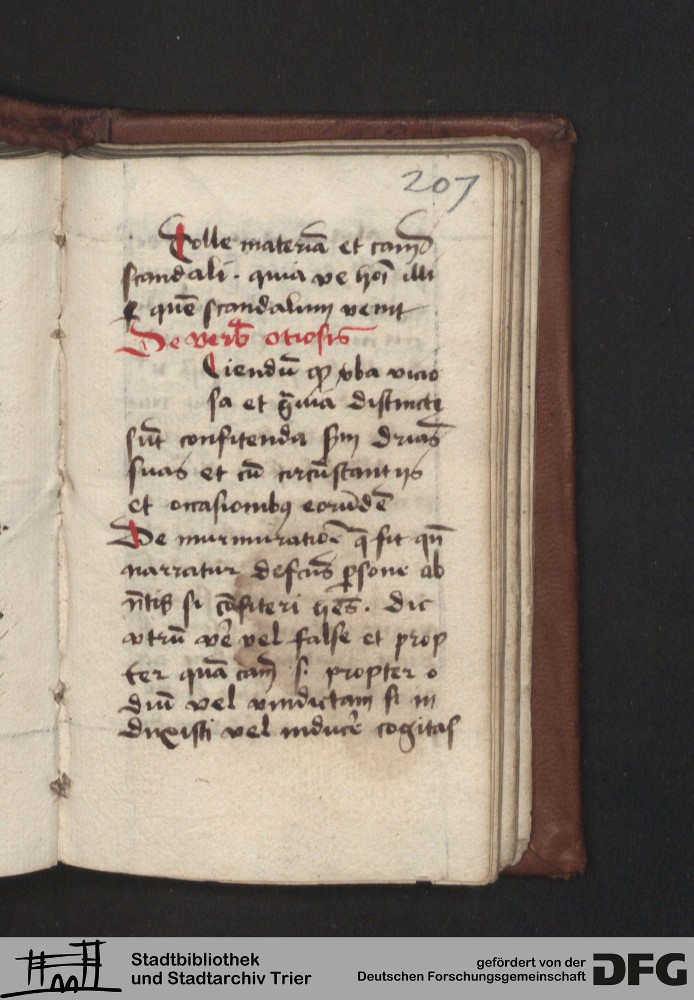 207
Tolle materiā et cam̄
scandali. quia ve hoī illi
ꝑ quē scandalum venit
De verb̄ otiosis
Ciendū ꝙ vba vicio
sa et g̃uia distincte
sūt confitenda scd̄m dr̄ias
suas et cū circūstantijs
et occasionibꝫ eorūdē
De murmuratiōe q̄ fit qn̄
narratur defcūs ꝑsone ab
n̄tis si cōfiteri hēs. Dic
vtrū vē vel false et prop
ter quā cam̄ s. propter o
diū vel vindictam si in
duxisti vel inducē cogitas
Stadtbibliothek
und Stadtarchiv Trier
gefördert von der
Deutschen Forschungsgemeinschaft
DFG